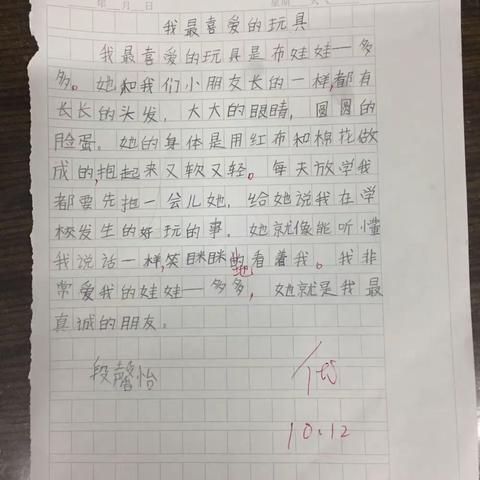 年 月 日 星期
我最喜爱的玩具
我最喜爱的玩具是布娃娃—多
多。她和我们小朋友长的一样,都有
长长的头发,大大的眼睛,圆圆的
脸蛋。她的身体是用红布和棉花做
成的,抱起来又软又轻。每天放学我
都要先抱一会儿她,给她说我在学
校发生的好玩的事。她就像能听懂
我说话一样,笑眯眯的看着我。我非
地
常爱我的娃娃—多多,她就是我最
真诚的朋友。
段馨怡
优
10.12